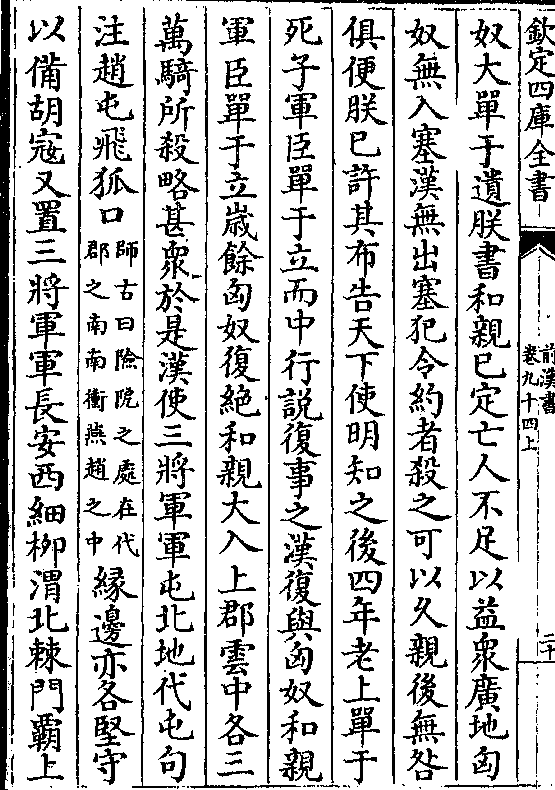 欽定四庫全書
前漢書
卷九十四上
二十
奴大單于遺朕書和親已定亡人不足以益衆廣地匈
奴無入塞漢無出塞犯令約者殺之可以久親後無咎
俱便朕已許其布告天下使明知之後四年老上單于
死子軍臣單于立而中行說復事之漢復與匈奴和親
軍臣單于立歲餘匈奴復絶和親大入上郡雲中各三
萬騎所殺略甚衆於是漢使三將軍軍屯北地代屯句
注趙屯飛狐口師古曰險阨之處在代郡之南南衝燕趙之中緣邊亦各堅守
以備胡寇又置三將軍軍長安西細栁渭北棘門霸上